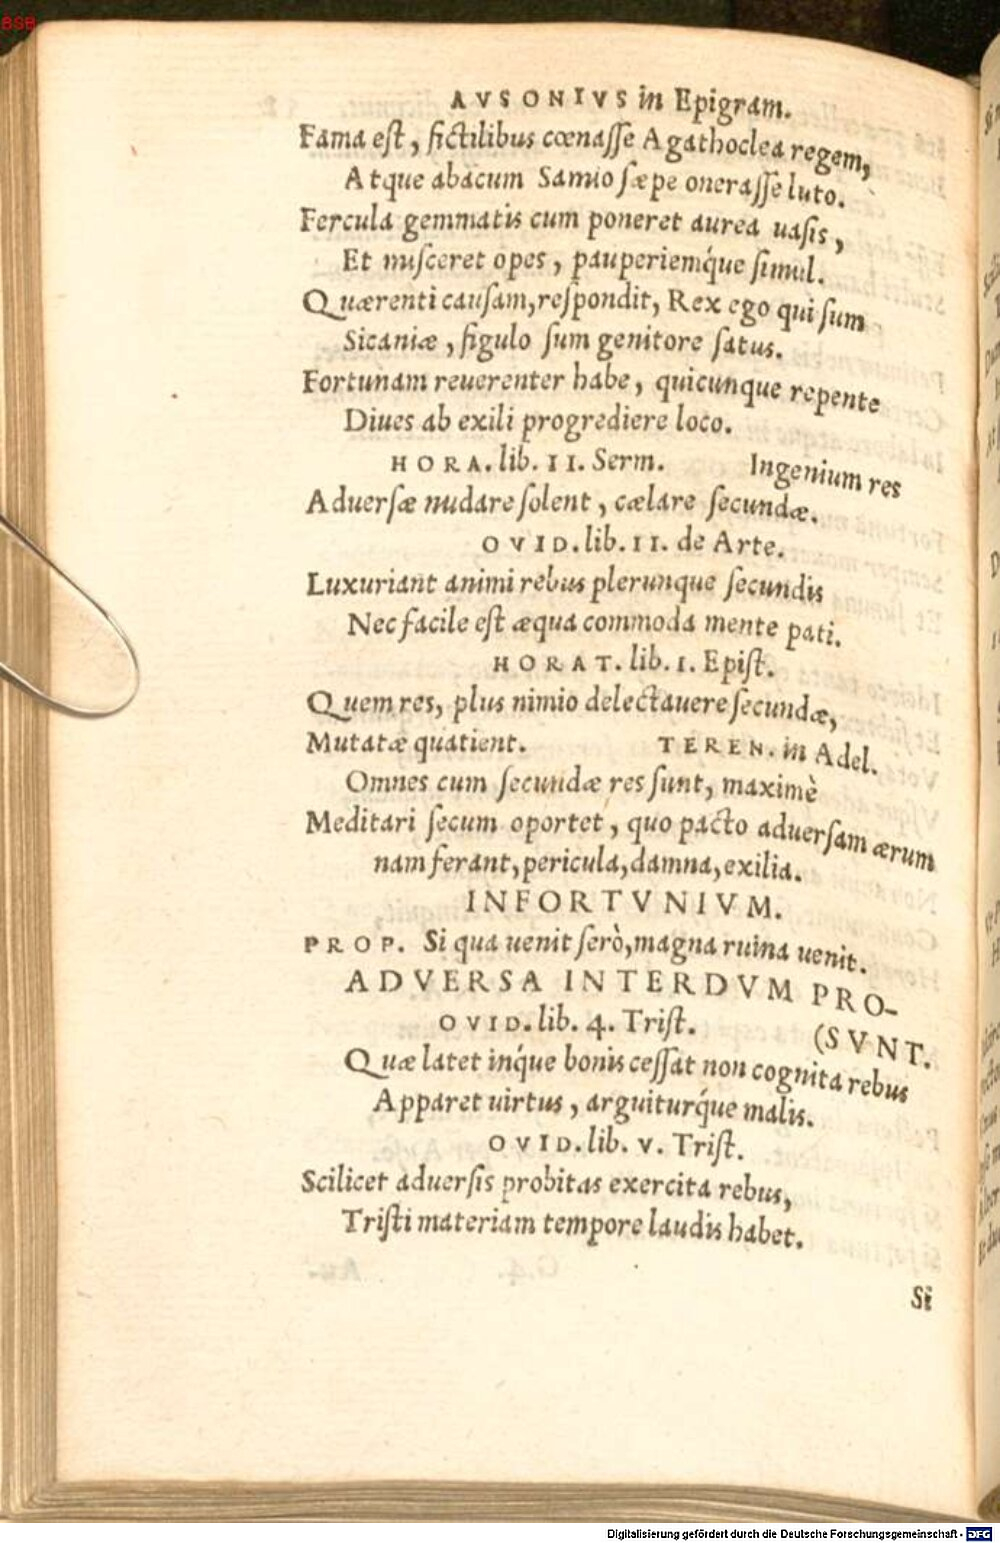 BSB
AVSONIVS in Epigram.
Fama eſt, fictilibus cœnaſſe Agathoclea regem,
Atque abacum Samio ſæpe oneraſſe luto.
Fercula gemmatis cum poneret aurea uaſis,
Et miſceret opes, pauperiemq́ue ſimul.
Quærenti cauſam, reſpondit, Rex ego qui ſum
Sicaniæ, figulo ſum genitore ſatus.
Fortunam reuerenter habe, quicunque repente
Diues ab exili progrediere loco.
HORA. lib. II. Serm. Ingenium res
Aduerſæ nudare ſolent, cælare ſecundæ.
OVID. lib. II. de Arte.
Luxuriant animi rebus plerunque ſecundis
Nec facile eſt æqua commoda mente pati.
HORAT. lib. I. Epiſt.
Quem res, plus nimio delectauere ſecundæ,
Mutatæ quatient. TEREN. in Adel.
Omnes cum ſecundæ res ſunt, maximè
Meditari ſecum oportet, quo pacto aduerſam ærum
nam ferant, pericula, damna, exilia.
INFORTVNIVM.
PROP. Si qua uenit ſerò, magna ruina uenit.
ADVERSA INTERDVM PRO-
(SVNT.
OVID. lib. 4. Triſt.
Quæ latet inq́ue bonis ceſſat non cognita rebus
Apparet uirtus, arguiturq́ue malis.
OVID. lib. V. Triſt.
Scilicet aduerſis probitas exercita rebus,
Triſti materiam tempore laudis habet.
Si
Digitalisierung gefördert durch die Deutsche Forschungsgemeinschaft - DFG